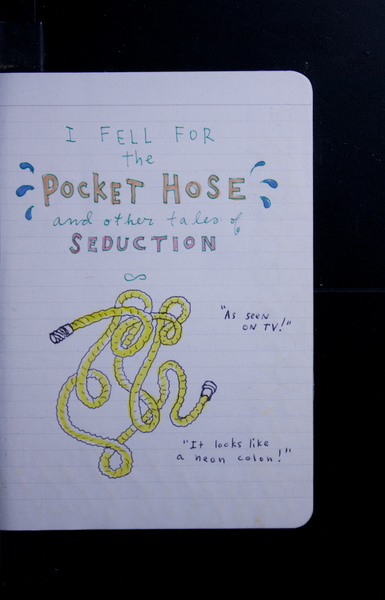 I FELL FOR
the
POCKET HOSE
and other tales of
SEDUCTION
"As seen
on TV!"
"It looks like
a neon colon!"